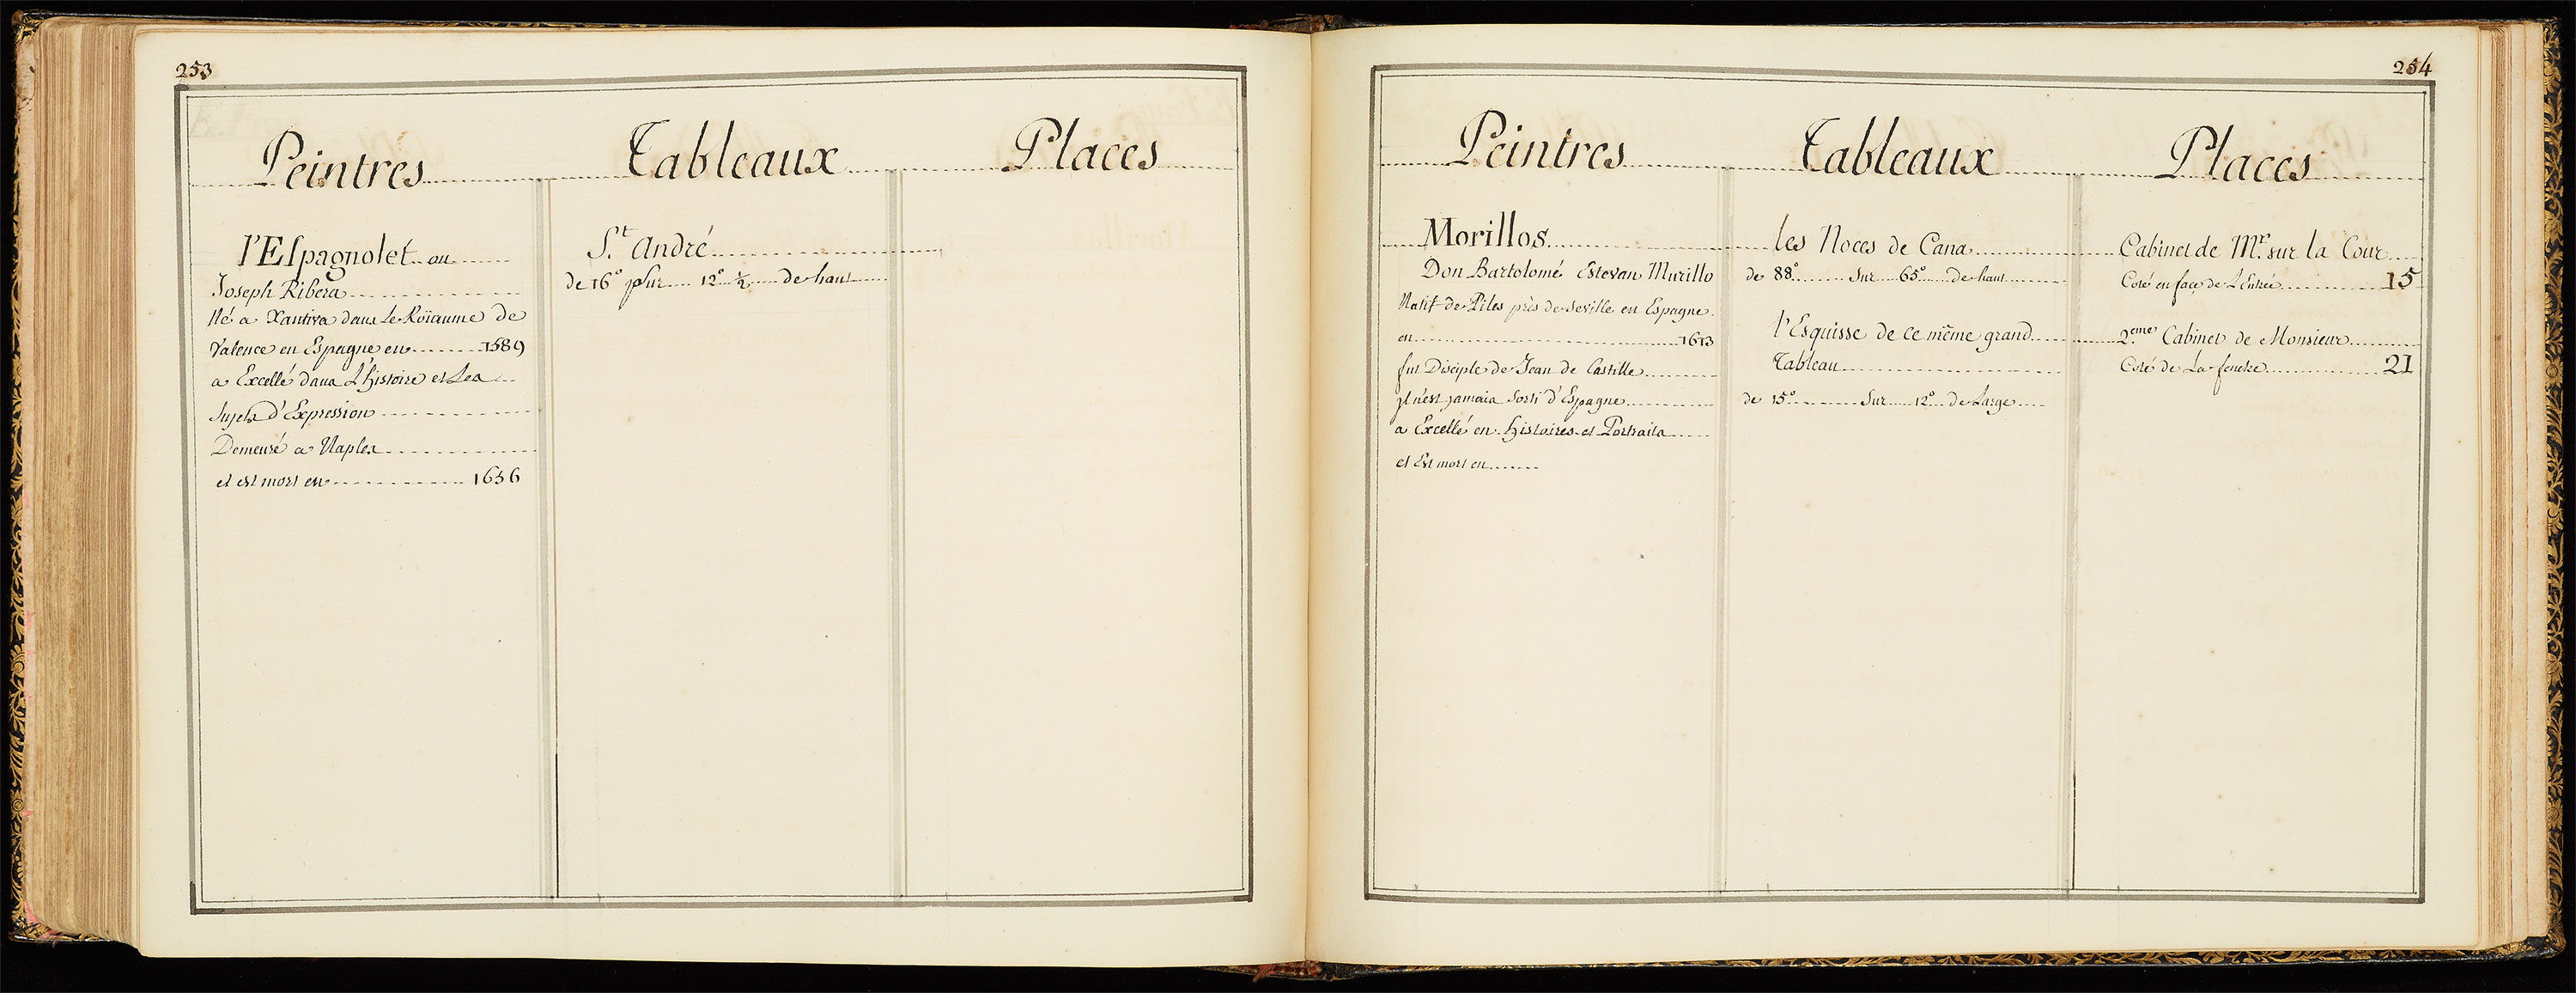 253
Peintres Tableaux Places
l'Espagnolet ou
Joseph Ribera
Né a Xantiva dans Le Roïaume de
Valence en Espagne en 1589
a Excellé dans L'histoire et Les
Sujets d'Expression
Demeuré a Naples
et est mort en 1656
St. André
de 16° sur 12° ½ de haut
254
Peintres Tableaux Places
Morillos
Don Bartolomé Estevan Murillo
Natif de Piles près de Seville en Espagne
en 1613
fut Disciple de Jean de Castille
jl n'est jamais Sorti d'Espagne
a Excellé en Histoires et Portraits
et Est mort en
les Noces de Cana
de 88° Sur 65° de haut
l'Esquisse de ce même grand
Tableau
de 15° Sur 12° de Large
Cabinet de Mr. sur la Cour
Coté en façe de L'Entrée 15
2.eme Cabinet de Monsieur
Coté de La fenetre 21